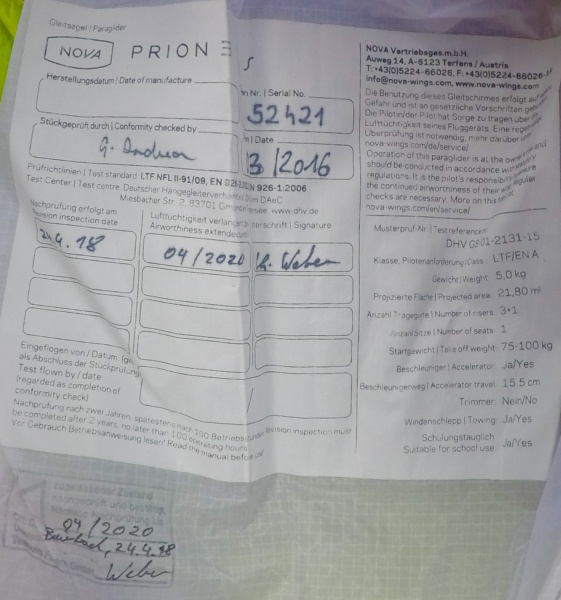 Gleitsegel | Paraglider
NOVA PRION 3 S
Herstellungsdatum | Date of manufacture
n Nr. | Serial No.
52421
Stückgeprüft durch | Conformity checked by
G. Andrea
| Date
3/2016
Prüfrichtlinien | Test standard LTF NFL II-91/09, EN 926-2:20 926-1:2006
Test Center | Test centre Deutscher Hängegleiterverband DAeC
Miesbacher Str. 2, 83701 Gmund www.dhv.de
Nachprüfung erfolgt am
vision inspection date
Lufttüchtigkeit verlän
Airworthiness extended
erschrift | Signature
24.4.18
04/2020
G. Weber
Eingeflogen von / Datum: (g
als Abschluss der Stückprüfung
Test flown by / date:
(regarded as completion of
conformity check)
Nachprüfung nach zwei Jahren, spätestens nach 100 Betriebs unden vision inspection must
be completed after 2 years, no later than 100 operating hours
Vor Gebrauch Betriebsanweisung lesen! Read the manual before use!
NOVA Vertriebsges.m.b.H.
Auweg 14, A-6123 Terfens / Austria
T: +43(0)5224-66026, F: +43(0)5224-66026-
info@nova-wings.com, www.nova-wings.com
Die Benutzung dieses Gleitschirmes erfolgt auf
Gefahr und ist an gesetzliche Vorschriften geb
Die Pilotin/der Pilot hat Sorge zu tragen über
Lufttüchtigkeit seines Fluggeräts. Eine rege
Überprüfung ist notwendig, mehr darüber un
nova-wings.com/de/service/
Operation of this paraglider is at the own and
should be conducted in accordance with
regulations. It is the pilot's responsibility
the continued airworthiness of their regular
checks are necessary. More on this
nova-wings.com/en/service/
Musterprüf-Nr. | Test reference: DHV GS-01-2131-15
Klasse, Pilotenanforderung | Class: LTF/EN A
Gewicht | Weight: 5,0 kg
Projizierte Fläche | Projected area: 21,80 m²
Anzahl Tragegurte | Number of risers: 3+1
Anzahl Sitze | Number of seats: 1
Startgewicht | Take off weight: 75-100 kg
Beschleuniger | Accelerator: Ja/Yes
Beschleunigerweg | Accelerator travel: 15,5 cm
Trimmer: Nein/No
Windenschlepp | Towing: Ja/Yes
Schulungstauglich
Suitable for school use: Ja/Yes
Zustand
nachgeprüft und
04/2020
24.4.18
Weber